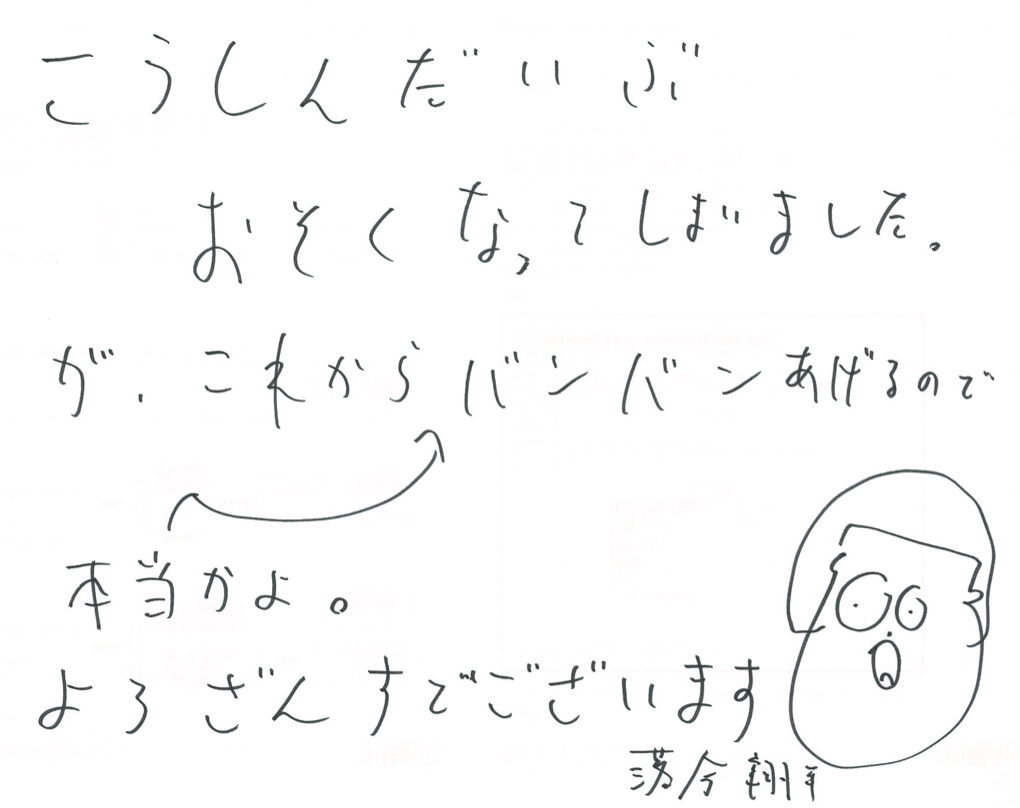 こうしんだいぶ
おそくなってしまいました。
が、これからバンバンあげるので
本当かよ。
よろざんすでございます
落合翔平